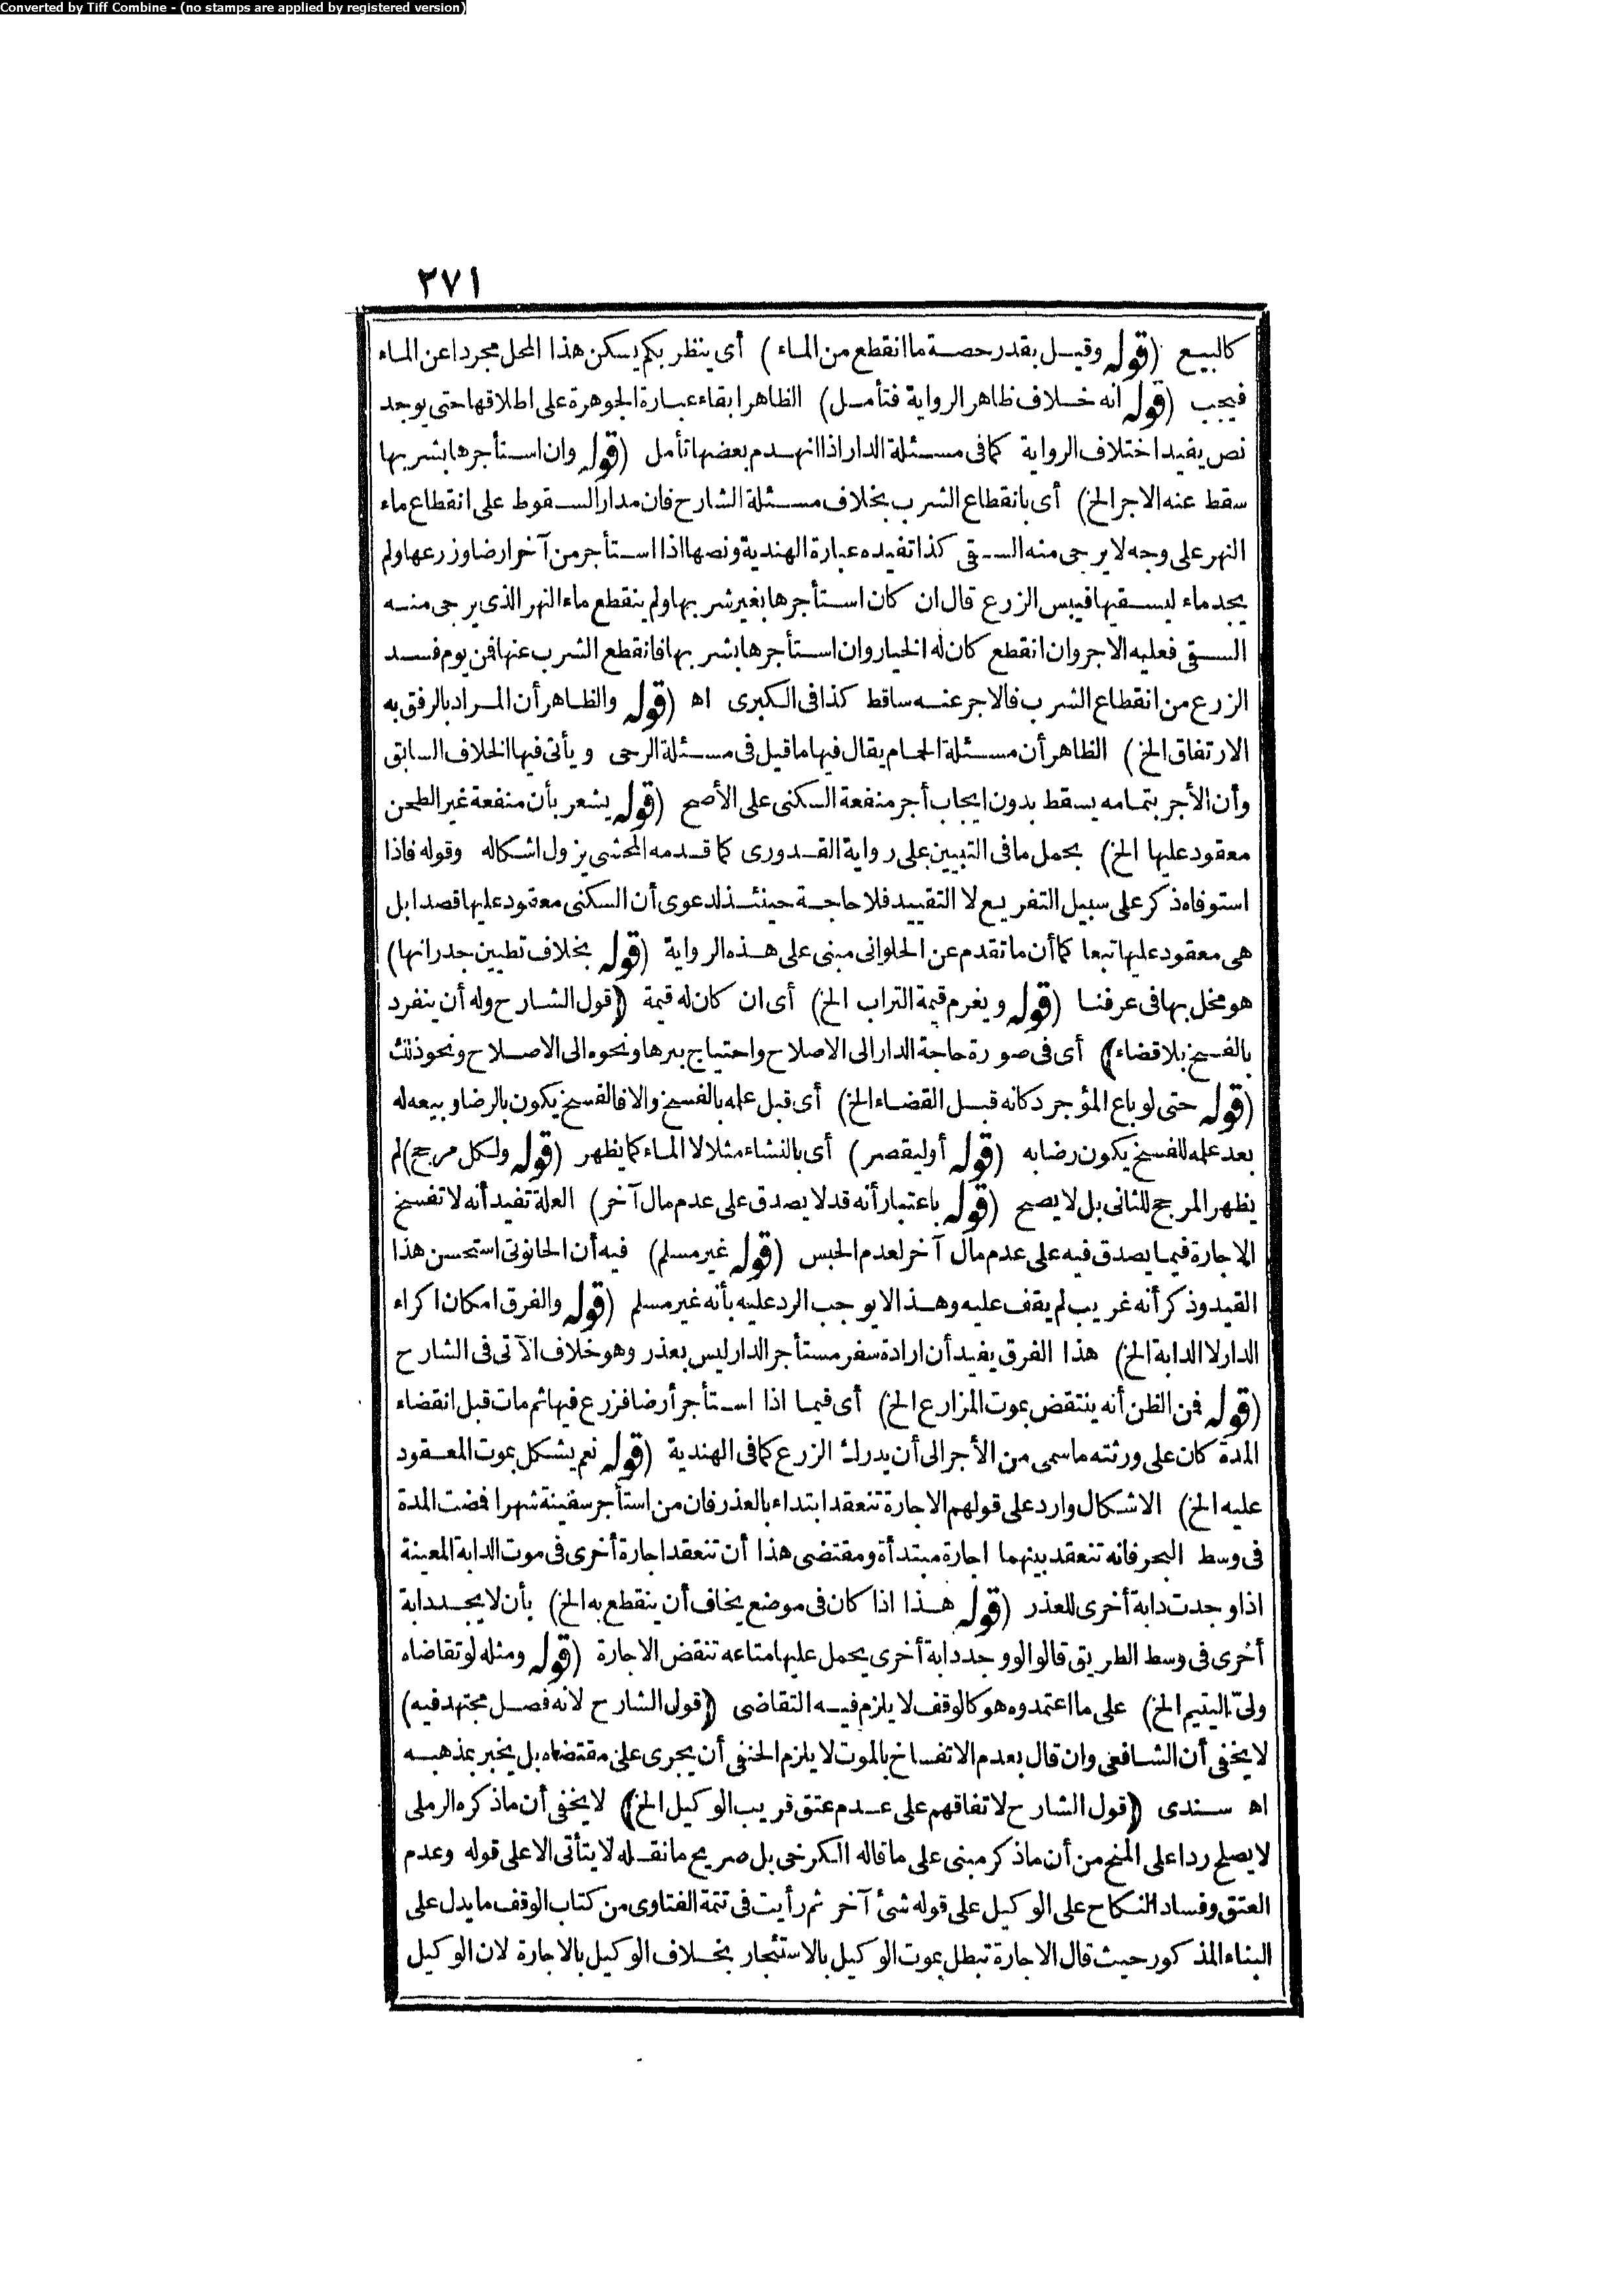 Converted by Tiff Combine - (no stamps are applied by registered version)
٢٧١
كالبيع (قوله وقيل بقدر حصة ما انقطع من الماء) أى ينظر بكم يسكن هذا المحل مجردا عن الماء
فيجب (قوله انه خلاف ظاهر الرواية فتأمل) الظاهر ابقاء عبارة الجوهرة على اطلاقها حتى يوجد
نص يفيد اختلاف الرواية كما فى مسئلة الدار اذا انهدم بعضها تأمل (قوله وان استأجرها بشربها
سقط عنه الاجر الخ) أى بانقطاع الشرب بخلاف مسئلة الشارح فان مدار السقوط على انقطاع ماء
النهر على وجه لا يرجى منه السقى كذا تفيده عبارة الهندية ونصها اذا استأجر من آخر ارضا وزرعها ولم
يجد ماء ليسقيها فيبس الزرع قال ان كان استأجرها بغير شربها ولم ينقطع ماء النهر الذى يرجى منه
السقى فعليه الاجر وان انقطع كان له الخيار وان استأجرها بشربها فانقطع الشرب عنها فمن يوم فسد
الزرع من انقطاع الشرب فالاجر عنه ساقط كذا فى الكبرى اه (قوله والظاهر أن المراد بالرفق به
الارتفاق الخ) الظاهر أن مسئلة الحمام يقال فيها ما قيل فى مسئلة الرحى ويأتى فيها الخلاف السابق
وأن الأجر بتمامه يسقط بدون ايجاب أجر منفعة السكنى على الأصح (قوله يشعر بأن منفعة غير الطحن
معقود عليها الخ) بحمل ما فى التبيين على رواية القدورى كما قدمه المحشى يزول اشكاله وقوله فاذا
استوفاه ذكر على سبيل التفريع لا التقييد فلا حاجة حينئذ لدعوى أن السكنى معقود عليها قصدا بل
هى معقود عليها تبعا كما أن ما تقدم عن الحلوانى مبنى على هذه الرواية (قوله بخلاف تطيين جدرانها)
هو مخل بها فى عرفنا (قوله ويغرم قيمة التراب الخ) أى ان كان له قيمة (قول الشارح وله أن ينفرد
بالفسخ بلا قضاء) أى فى صورة حاجة الدار الى الاصلاح واحتياج بئرها ونحوه الى الاصلاح ونحو ذلك
(قوله حتى لو باع المؤجر دكانه قبل القضاء الخ) أى قبل علمه بالفسخ والا فالفسخ يكون بالرضا وبيعه له
بعد علمه للفسخ يكون رضا به (قوله أو ليقصر) أى بالنشاء مثلا لا الماء كما يظهر (قوله ولكل مرجح) لم
يظهر المرجح للثانى بل لا يصح (قوله باعتبار أنه قد لا يصدق على عدم مال آخر) العلة تفيد أنه لا تفسخ
الاجارة فيما يصدق فيه على عدم مال آخر لعدم الحبس (قوله غير مسلم) فيه أن الحانوتى استحسن هذا
القيد وذكر أنه غريب لم يقف عليه وهذا لا يوجب الرد عليه بأنه غير مسلم (قوله والفرق امكان اكراء
الدار لا الدابة الخ) هذا الفرق يفيد أن ارادة سفر مستأجر الدار ليس بعذر وهو خلاف الآتى فى الشارح
(قوله فمن الظن أنه ينتقض بموت المزارع الخ) أى فيما اذا استأجر أرضا فزرع فيها ثم مات قبل انقضاء
المدة كان على ورثته ما سمى من الأجر الى أن يدرك الزرع كما فى الهندية (قوله نعم يشكل بموت المعقود
عليه الخ) الاشكال وارد على قولهم الاجارة تنعقد ابتداء بالعذر فان من استأجر سفينة شهرا فمضت المدة
فى وسط البحر فانه تنعقد بينهما اجارة مبتدأة ومقتضى هذا أن تنعقد اجارة أخرى فى موت الدابة المعينة
اذا وجدت دابة أخرى للعذر (قوله هذا اذا كان فى موضع يخاف أن ينقطع به الخ) بأن لا يجد دابة
أخرى فى وسط الطريق قالوا لو وجد دابة أخرى يحمل عليها متاعه تنقض الاجارة (قوله ومثله لو تقاضاه
ولىّ اليتيم الخ) على ما اعتمدوه هو كالوقف لا يلزم فيه التقاضى (قول الشارح لانه فصل مجتهد فيه)
لا يخفى أن الشافعى وان قال بعدم الانفساخ بالموت لا يلزم الحنفى أن يجرى على مقتضاه بل يخبر بمذهبه
اه سندى (قول الشارح لاتفاقهم على عدم عتق قريب الوكيل الخ) لا يخفى أن ما ذكره الرملى
لا يصلح ردا على المنح من أن ما ذكر مبنى على ما قاله الكرخى بل صريح ما نقله لا يتأتى الا على قوله وعدم
العتق وفساد النكاح على الوكيل على قوله شئ آخر ثم رأيت فى تتمة الفتاوى من كتاب الوقف ما يدل على
البناء المذكور حيث قال الاجارة تبطل بموت الوكيل بالاستئجار بخلاف الوكيل بالاجارة لان الوكيل